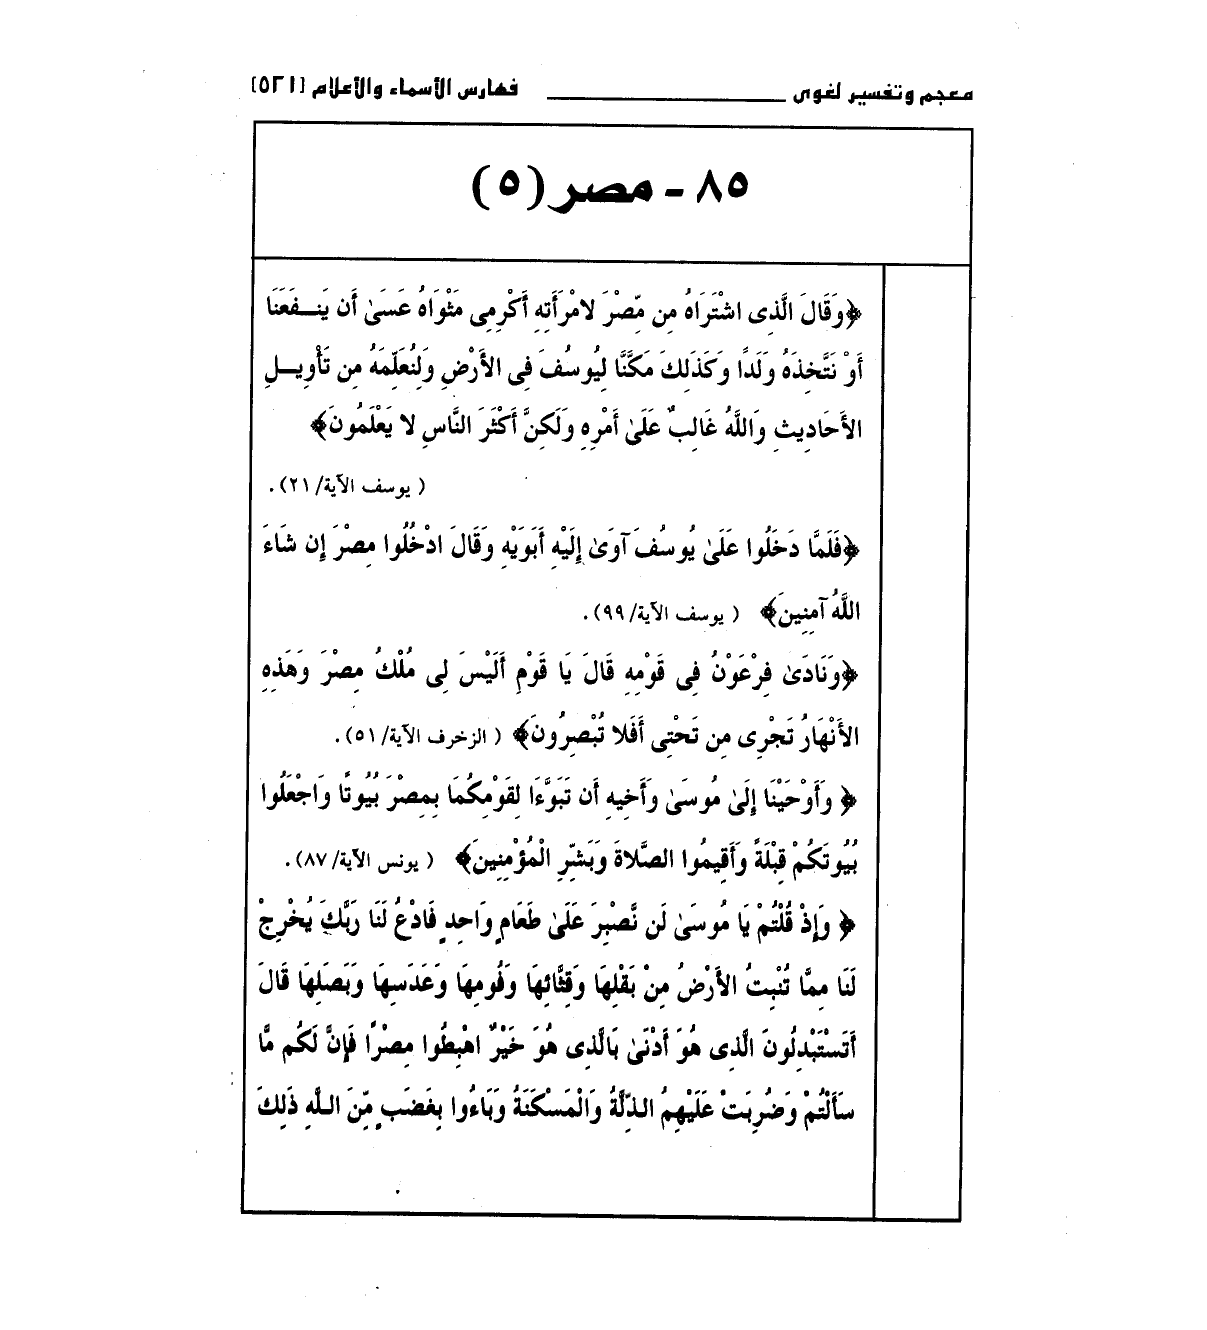 معجم وتفسير لغوى ــــــــــــ فهارس الأسماء والأعلام [٥٢١]
٨٥ - مصر (٥)
﴿وَقَالَ الَّذِى اشْتَرَاهُ مِن مِّصْرَ لامْرَأَتِهِ أَكْرِمِى مَثْوَاهُ عَسَىٰ أَن يَنـفَعَنَا
أَوْ نَتَّخِذَهُ وَلَدًا وَكَذَلِكَ مَكَّنَّا لِيُوسُفَ فِى الأَرْضِ وَلِنُعَلِّمَهُ مِن تَأْوِيـلِ
الأَحَادِيثِ وَاللَّهُ غَالِبٌ عَلَىٰ أَمْرِهِ وَلَكِنَّ أَكْثَرَ النَّاسِ لا يَعْلَمُونَ﴾
( يوسف الآية/ ٢١).
﴿فَلَمَّا دَخَلُوا عَلَىٰ يُوسُفَ آوَىٰ إِلَيْهِ أَبَوَيْهِ وَقَالَ ادْخُلُوا مِصْرَ إِن شَاءَ
اللَّهُ آمِنِينَ﴾ ( يوسف الآية/ ٩٩).
﴿وَنَادَىٰ فِرْعَوْنُ فِى قَوْمِهِ قَالَ يَا قَوْمِ أَلَيْسَ لِى مُلْكُ مِصْرَ وَهَذِهِ
الأَنْهَارُ تَجْرِى مِن تَحْتِى أَفَلا تُبْصِرُونَ﴾ ( الزخرف الآية/ ٥١).
﴿ وَأَوْحَيْنَا إِلَىٰ مُوسَىٰ وَأَخِيهِ أَن تَبَوَّءَا لِقَوْمِكُمَا بِمِصْرَ بُيُوتًا وَاجْعَلُوا
بُيُوتَكُمْ قِبْلَةً وَأَقِيمُوا الصَّلاةَ وَبَشِّرِ الْمُؤْمِنِينَ﴾ ( يونس الآية/ ٨٧).
﴿ وَإِذْ قُلْتُمْ يَا مُوسَىٰ لَن نَّصْبِرَ عَلَىٰ طَعَامٍ وَاحِدٍ فَادْعُ لَنَا رَبَّكَ يُخْرِجْ
لَنَا مِمَّا تُنْبِتُ الأَرْضُ مِنْ بَقْلِهَا وَقِثَّائِهَا وَفُومِهَا وَعَدَسِهَا وَبَصَلِهَا قَالَ
أَتَسْتَبْدِلُونَ الَّذِى هُوَ أَدْنَىٰ بَالَّذِى هُوَ خَيْرٌ اهْبِطُوا مِصْرًا فَإِنَّ لَكُم مَّا
سَأَلْتُمْ وَضُرِبَتْ عَلَيْهِمُ الذِّلَّةُ وَالْمَسْكَنَةُ وَبَاءُوا بِغَضَبٍ مِّنَ اللَّهِ ذَلِكَ